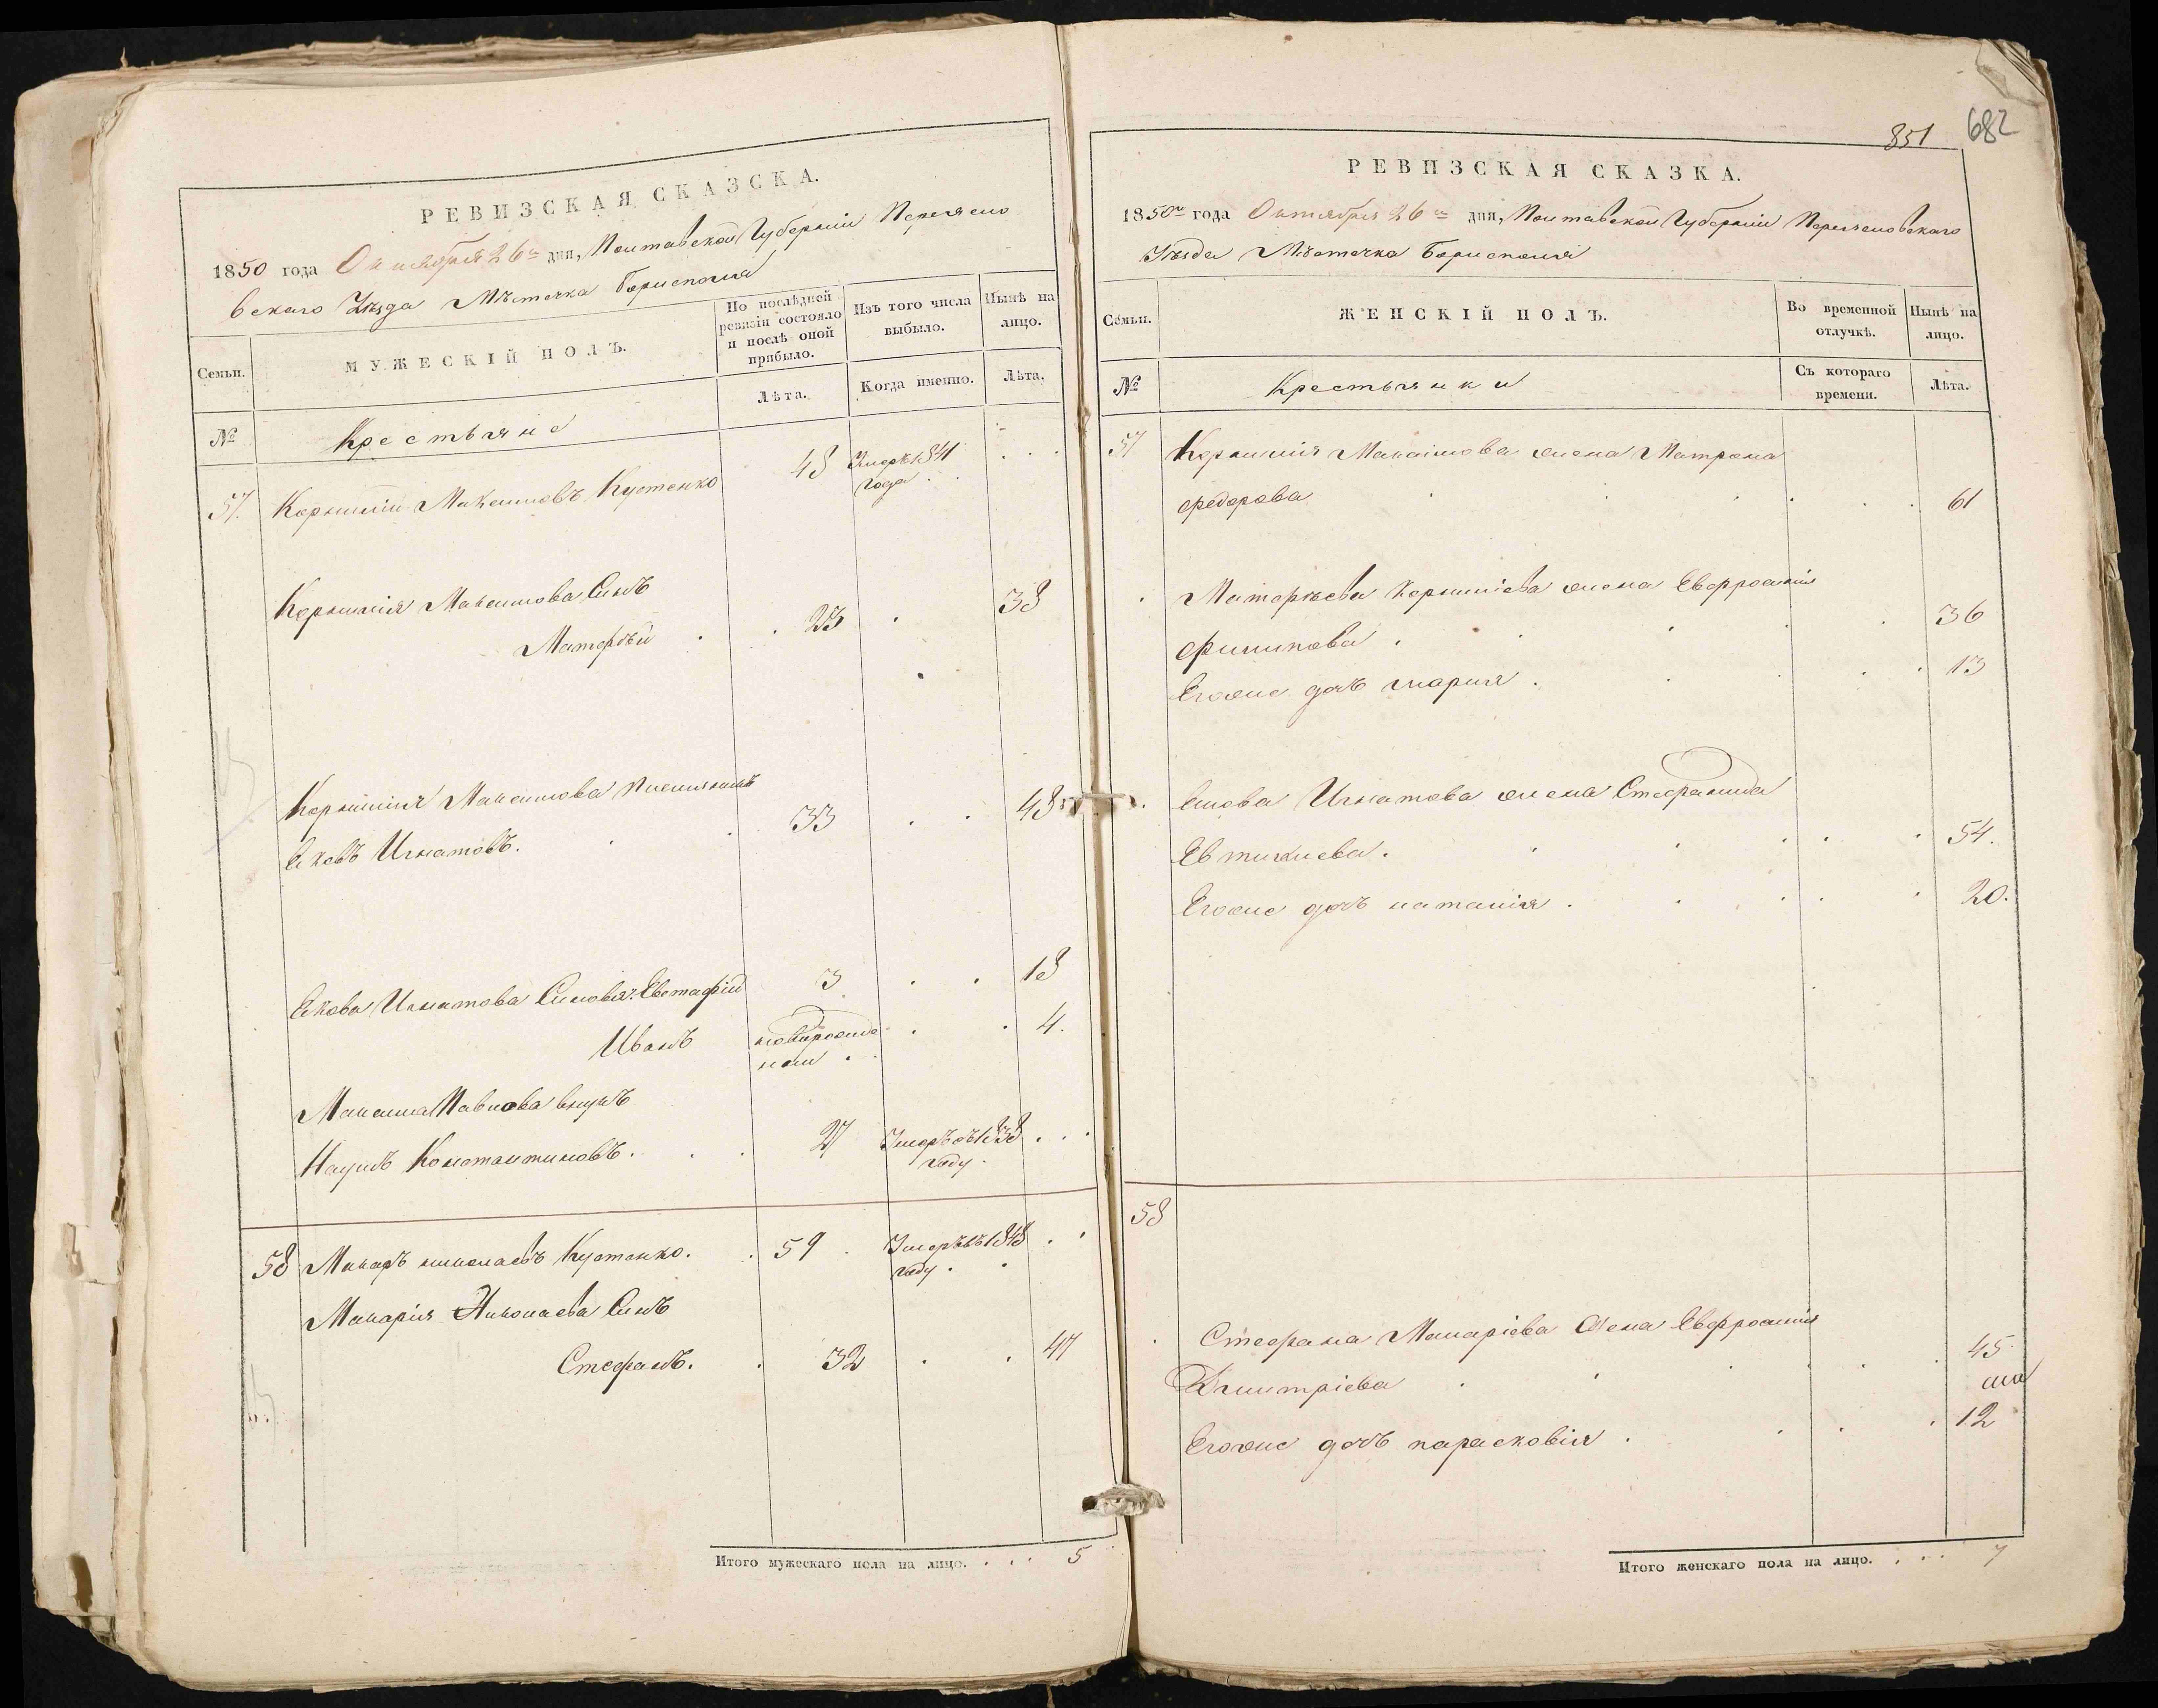 РЕВИЗСКАЯ СКАЗСКА.
1850 года Октября 26го дня, Полтавской Губерніи Переясло
вскаго Уезда Мѣстечка Борисполя
Семьи.
МУЖЕСКІЙ ПОЛЪ.
По послѣдней ревизіи состояло и послѣ оной прибыло.
Изъ того числа выбыло.
Нынѣ на лицо.
№
Крестьяне
Лѣта.
Когда именно.
Лѣта.
57. Корнилій Максимовъ Кустенко 48 Умеръ 1841
года
Корнилія Максимова Синъ
Матофѣй 23 38
Корнилія Максимова племяникъ
Яковъ Игнатовъ. 33 48
Якова Игнатова Синовья: Евстафій 3 18
Иванъ 4.
Максима Павлова внукъ
Наумъ Константиновъ. 27 Умеръ въ 1838
году
58 Макаръ николаевъ Кустенко. 59 Умеръ въ 1848
году
Макарія Николаева Синъ
Стефанъ. 32 47
Итого мужескаго пола на лицо. . . . 5
851 682
РЕВИЗСКАЯ СКАЗКА.
1850го года Октября 26го дня, Полтавской Губерніи Переясловскаго
Уѣзда Мѣстечка Борисполя
Семьи.
ЖЕНСКІЙ ПОЛЪ.
Во временной отлучкѣ.
Нынѣ на лицо.
№
Крестьянки
Съ котораго времени.
Лѣта.
57 Корнилія Макаимова жена Матрона
федорова 61
Матофѣева Корниліева жена Евфросинія
филипова 36
Егоже дочъ марія 13
Якова Игнатова жена Стефанида
Евтихиева. 54.
Егоже дочъ наталія 20.
58
Стефана Макаріева Жена Евфросинія
Дмитріева 45
Егоже дочъ парасковія 12
Итого женскаго пола на лицо. . . . 7